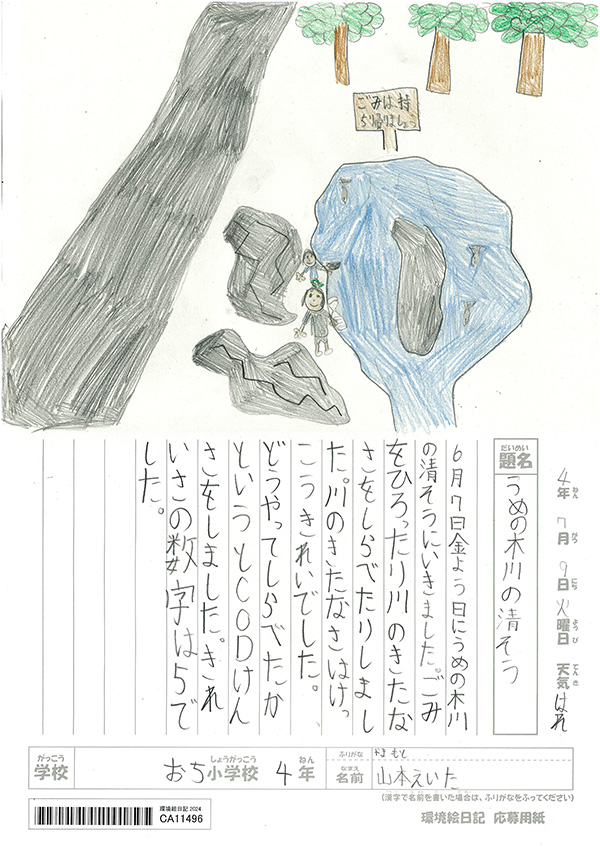 ごみは持
ち帰りましょう
4年 7月 9日 火曜日 天気 はれ
ねん がつ にち ようび てんき
だいめい
題名
うめの木川の清そう
6月7日金よう日にうめの木川
の清そうにいきました。ごみ
をひろったり川のきたな
さをしらべたりしまし
た。川のきたなさはけっ
こうきれいでした。
どうやってしらべたか
というとCODけん
さをしました。きれ
いさの数字は5で
した。
がっこう
学校
しょうがっこう ねん
おち小学校 4年
ふりがな
やまもと
なまえ
名前
山本えいた
(漢字で名前を書いた場合は、ふりがなをふってください)
環境絵日記 2024
CA11496
環境絵日記 応募用紙